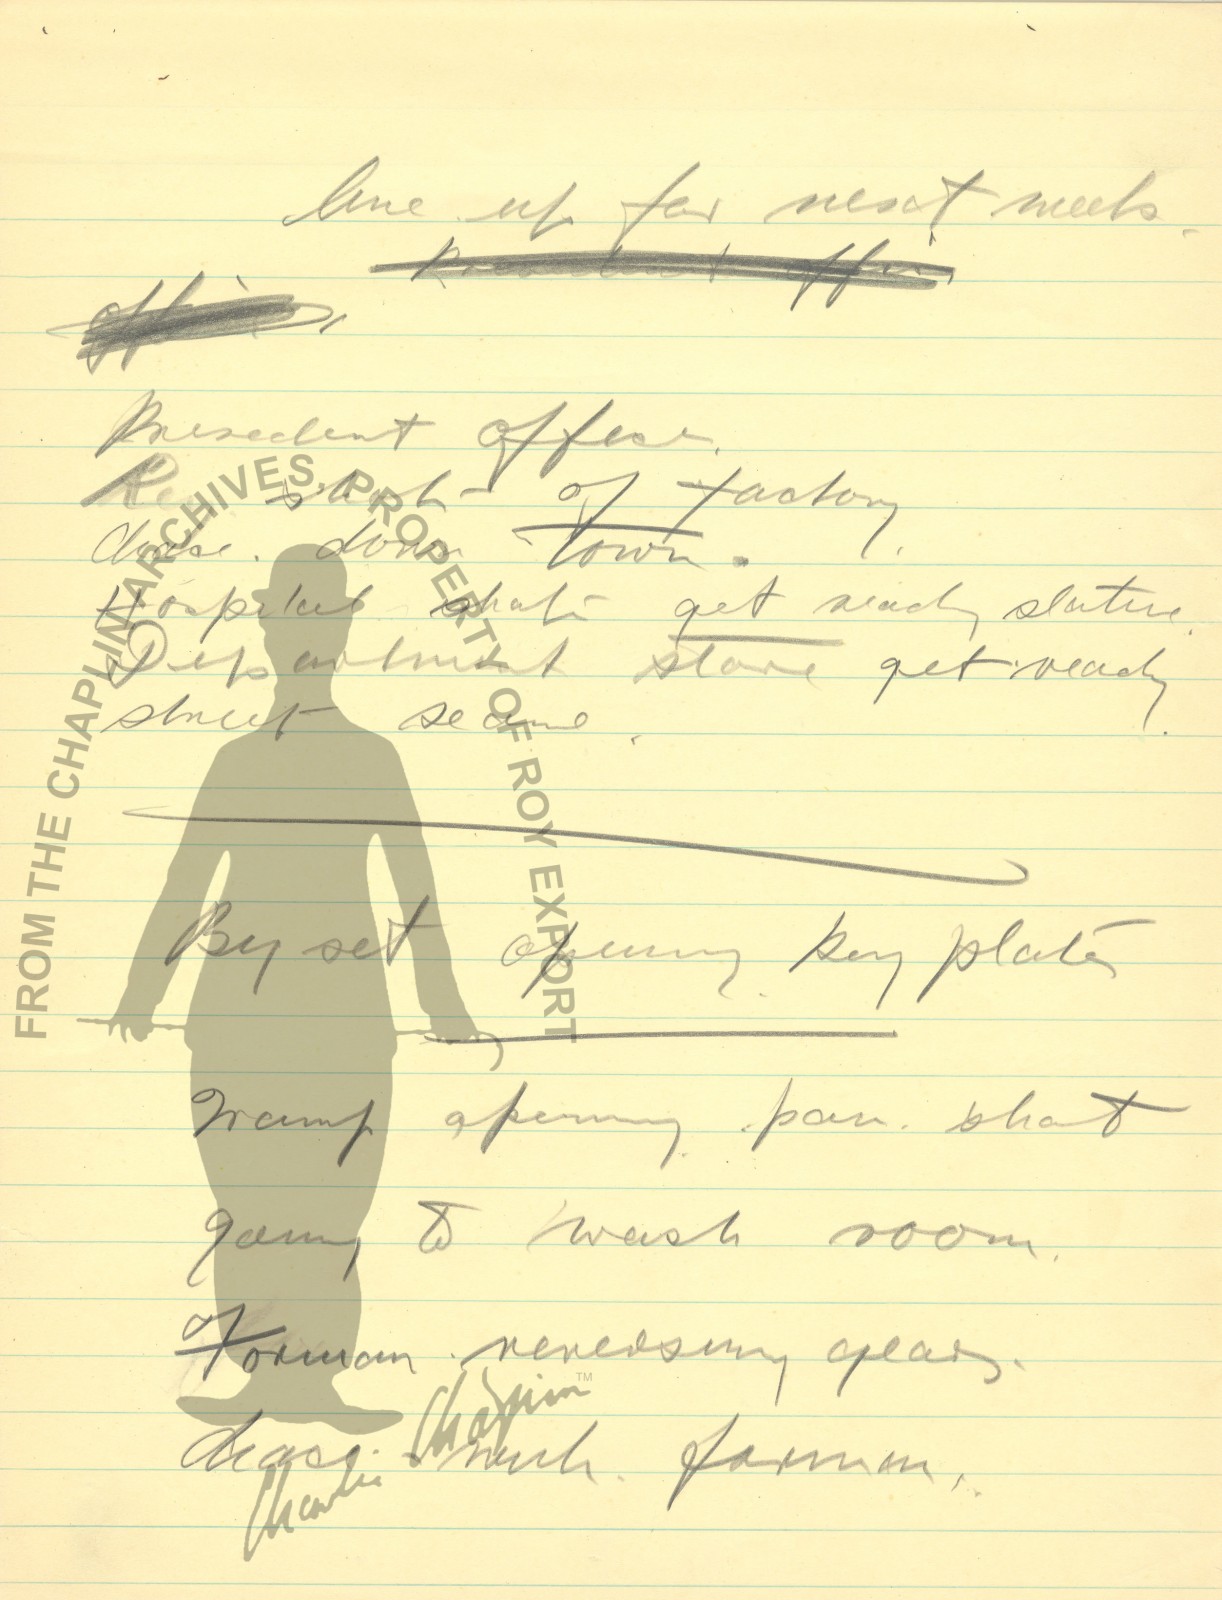 line up for next week.
President offic
offic,
President offece.
Re shots of Factory
chase. down Town.
Hospital shots get ready
Department store get ready
street scene.
By set opening key plates
Tramp opening. pan. shot
going to wash room.
Forman reversing gears.
chase with forman.
FROM THE CHAPLIN ARCHIVES, PROPERTY OF ROY EXPORT
Charlie Chaplin™